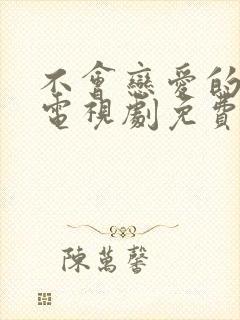 不會戀愛的
電視劇免費
陳萬馨